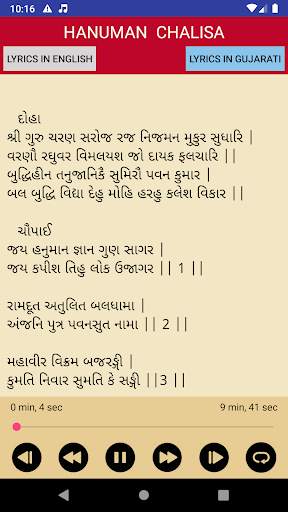 10:16
HANUMAN CHALISA
LYRICS IN ENGLISH
LYRICS IN GUJARATI
દોહા
શ્રી ગુરુ ચરણ સરોજ રજ નિજમન મુકુર સુધારિ |
વરણૌ રઘુવર વિમલયશ જો દાયક ફલચારિ ||
બુદ્ધિહીન તનુજાનિકૈ સુમિરૌ પવન કુમાર |
બલ બુદ્ધિ વિદ્યા દેહુ મોહિ હરહુ કલેશ વિકાર ||
ચૌપાઈ
જય હનુમાન જ્ઞાન ગુણ સાગર |
જય કપીશ તિહુ લોક ઉજાગર || 1 ||
રામદૂત અતુલિત બલધામા |
અંજનિ પુત્ર પવનસુત નામા || 2 ||
મહાવીર વિક્રમ બજરઙ્ગી |
કુમતિ નિવાર સુમતિ કે સઙ્ગી ||3 ||
0 min, 4 sec
9 min, 41 sec